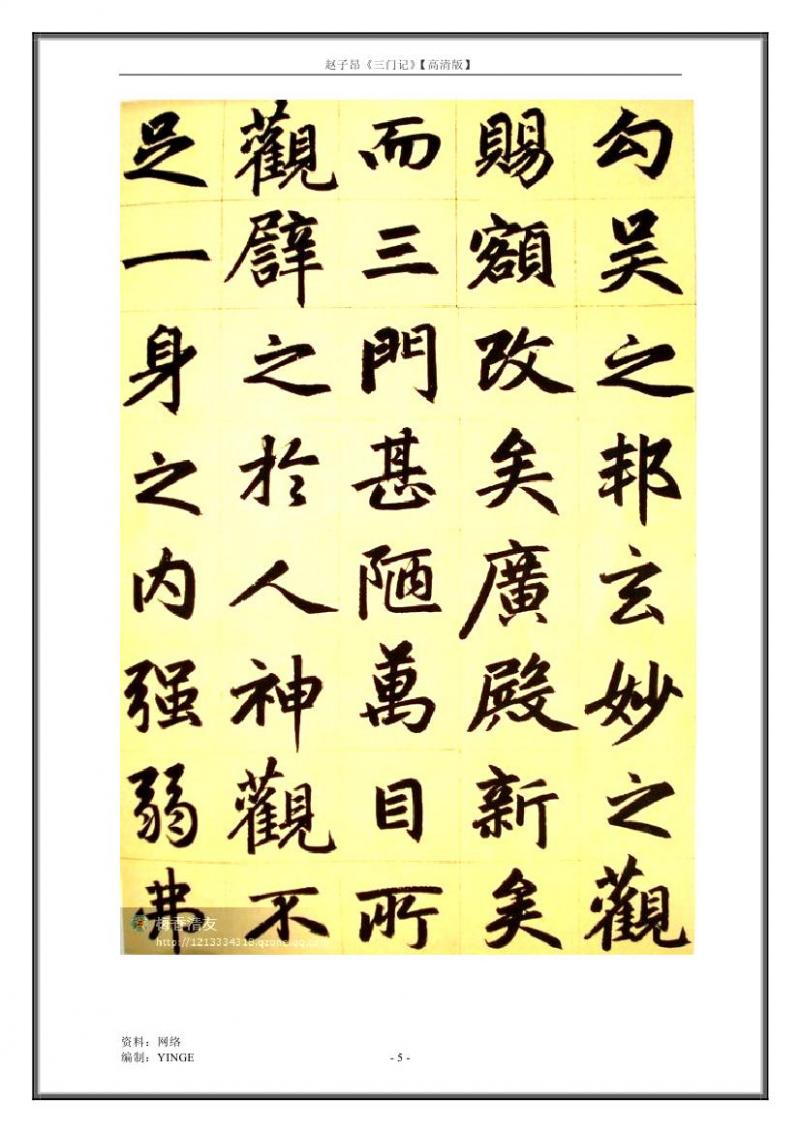 赵子昂《三门记》【高清版】
勾吴之邦玄妙之觀
賜額改矣廣殿新矣
而三門甚陋萬目所
觀譬之於人神觀不
足一身之内强弱弗
梅香清友
http://1213334318.qzone.qq.com
资料：网络
编制：YINGE
- 5 -